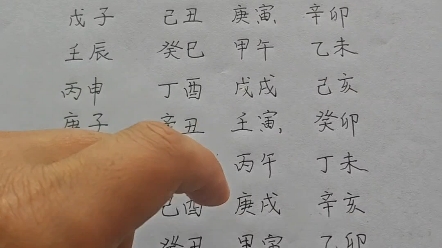 戊子 己丑 庚寅 辛卯
壬辰 癸巳 甲午 乙未
丙申 丁酉 戊戌 己亥
庚子 辛丑 壬寅 癸卯
丙午 丁未
己酉 庚戌 辛亥
癸丑 甲寅 乙卯